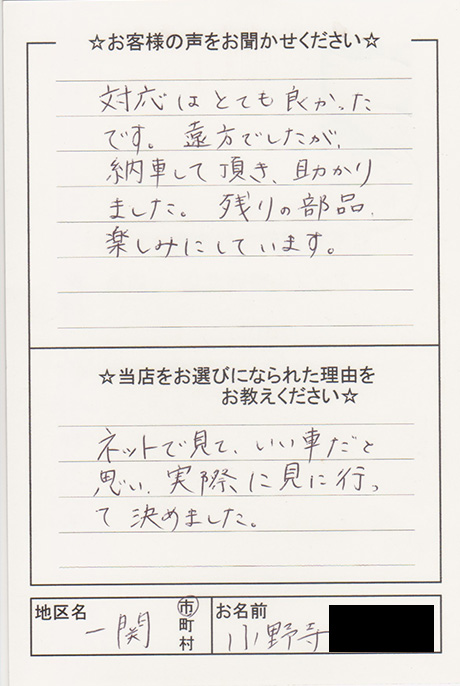 ☆お客様の声をお聞かせください☆
対応はとても良かった
です。遠方でしたが、
納車して頂き、助かり
ました。残りの部品、
楽しみにしています。
☆当店をお選びになられた理由を
お教えください☆
ネットで見て、いい車だと
思い、実際に見に行っ
て決めました。
地区名
一関
市
町
村
お名前
小野寺